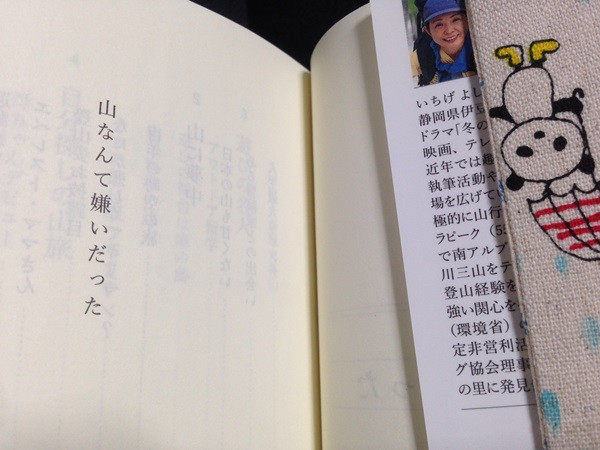 山なんて嫌いだった
いちげ よし
静岡県伊豆
ドラマ「冬の
映画、テレ
近年では趣
執筆活動や
場を広げて
極的に山行
ラピーク（55
で南アルプ
川三山をテ
登山経験を
強い関心を
（環境省）の
定非営利活
グ協会理事
の里に発見